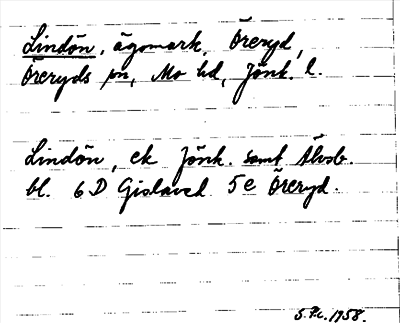 Lindön, ägomark, Öreryd,
Öreryds sn, Mo hd, Jönk. l.
Lindön, ek Jönk. samt Älvsb.
bl. 6 D Gislaved 5 e Öreryd.
1958.